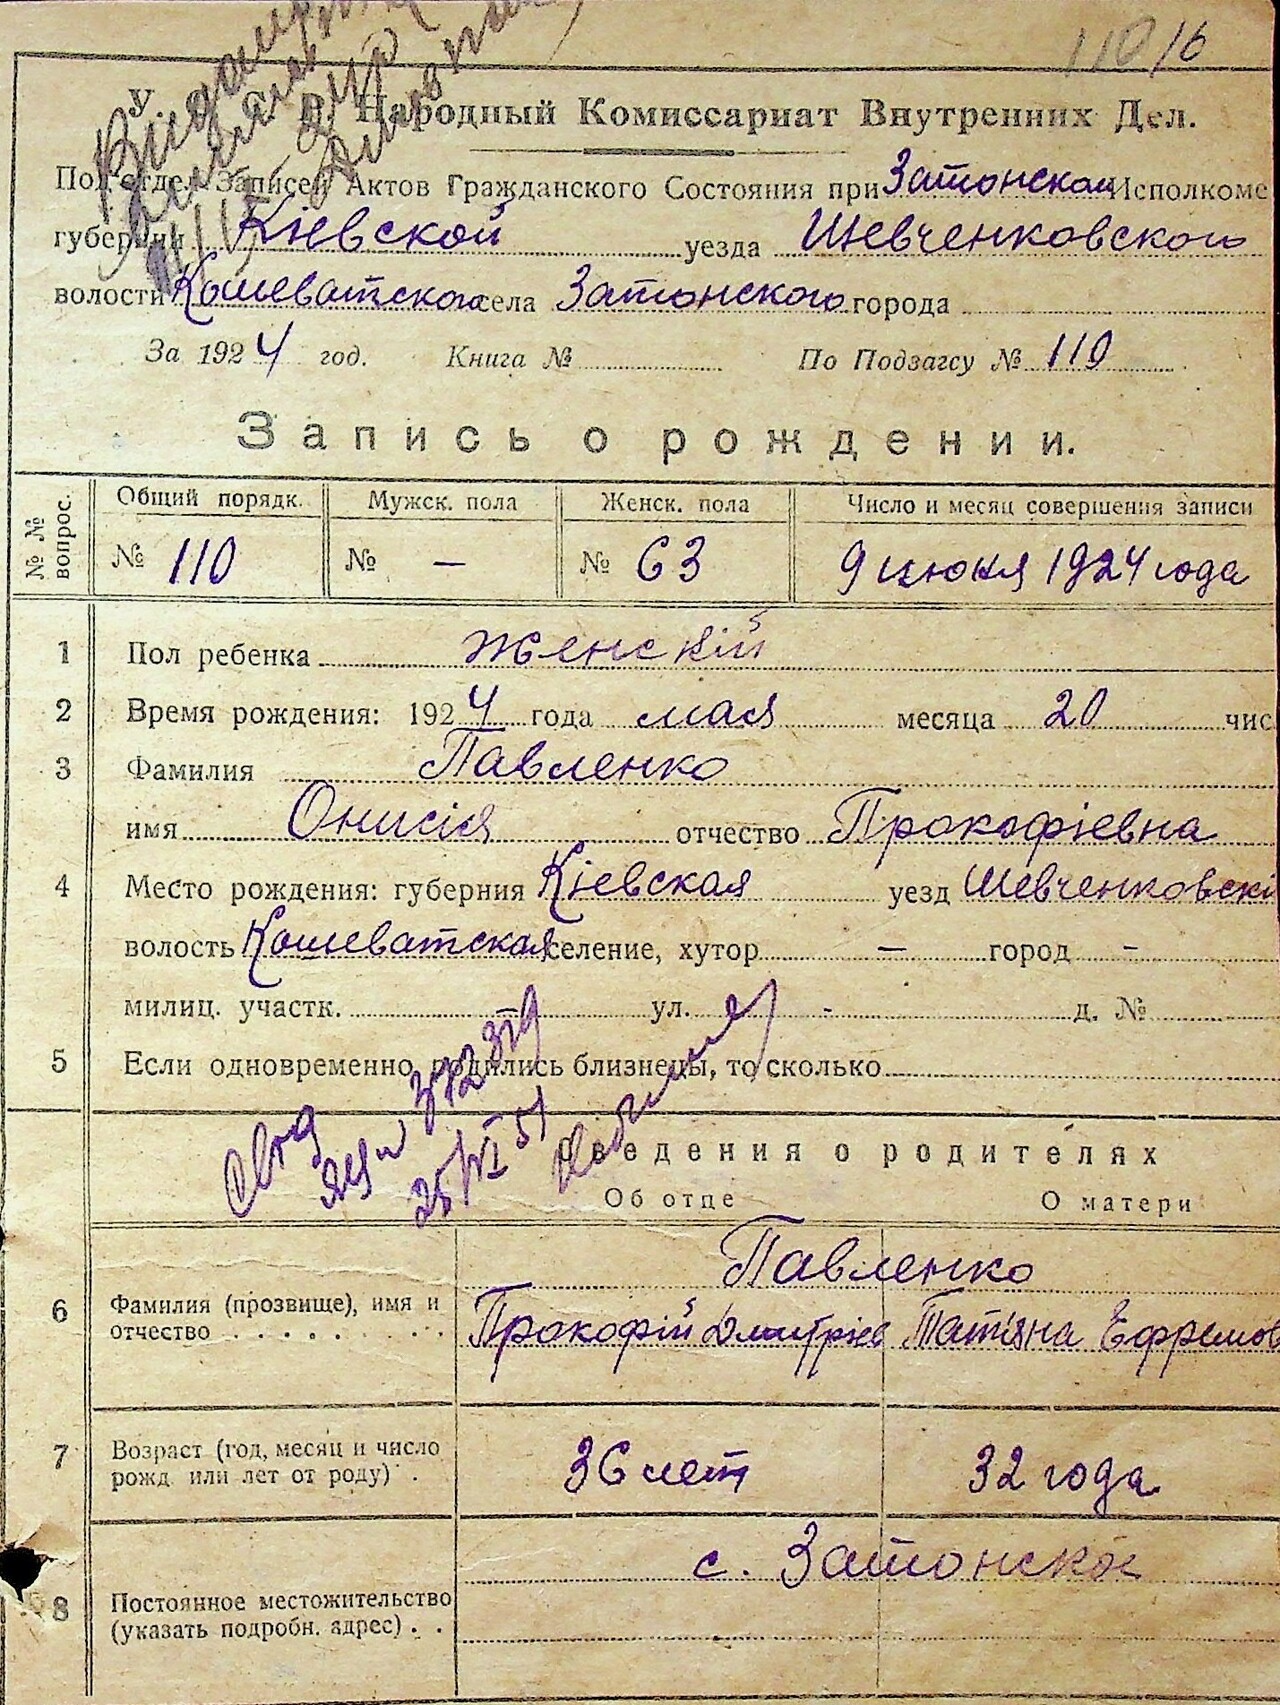 110 16
У. Народный Комиссариат Внутренних Дел.
Подотдел Записей Актов Гражданского Состояния при Затонском Исполкоме
губернии Кіевской уезда Шевченковского
волости Кошеватского села Затонского города
За 1924 год. Книга № По Подзагсу № 110
Запись о рождении.
№ № вопрос. Общий порядк. Мужск. пола Женск. пола Число и месяц совершения записи
№ 110 № — № 63 9 июня 1924 года
1 Пол ребенка женскій
2 Время рождения: 1924 года мая месяца 20 чис
3 Фамилия Павленко
имя Онисія отчество Прокофіевна
4 Место рождения: губерния Кіевская уезд Шевченковскі
волость Кошеватская селение, хутор — город -
милиц. участк. ул. - д. №
5 Если одновременно родились близнецы, то сколько
372379
25/VI 51
Сведения о родителях
Об отце О матери
Павленко
6 Фамилия (прозвище), имя и
отчество Прокофій Дмитріев Татіяна Ефремов
7 Возраст (год, месяц и число
рожд или лет от роду) 36 лет 32 года
с. Затонское
8 Постоянное местожительство
(указать подробн. адрес)